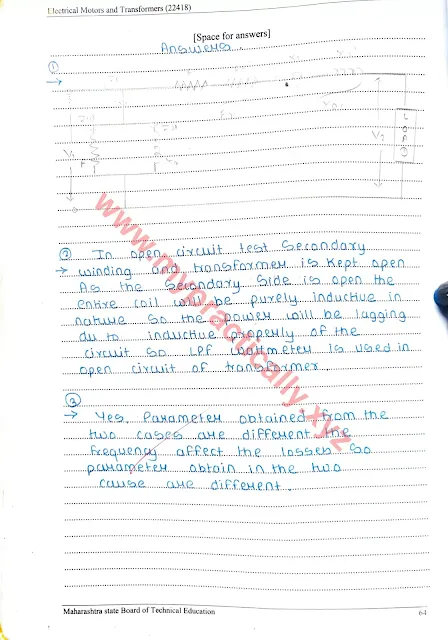 Electrical Motors and Transformers (22418)
[Space for answers]
Answers.
①
→
V1
V2
LOAD
② In open circuit test Secondary
→ winding and transformer is kept open
As the secondary side is open the
entire coil will be purely inductive in
nature so the power will be lagging
du to inductive properly of the
circuit so LPF wattmeter is used in
open circuit of transformer.
③
→ Yes, Parameter obtained from the
two cases are different the
frequency affect the losses so
parameter obtain in the two
cause are different.
www.mypractically.xyz
Maharashtra state Board of Technical Education